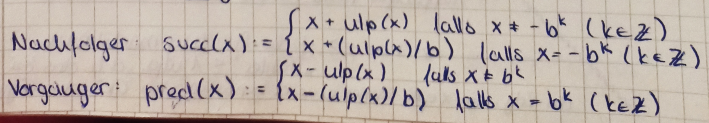 Nachfolger: succ(x) := { x + ulp(x) falls x ≠ -b^k (k∈ℤ)
x + (ulp(x)/b) falls x = -b^k (k∈ℤ)
Vorgänger: pred(x) := { x - ulp(x) falls x ≠ b^k
x - (ulp(x)/b) falls x = b^k (k∈ℤ)